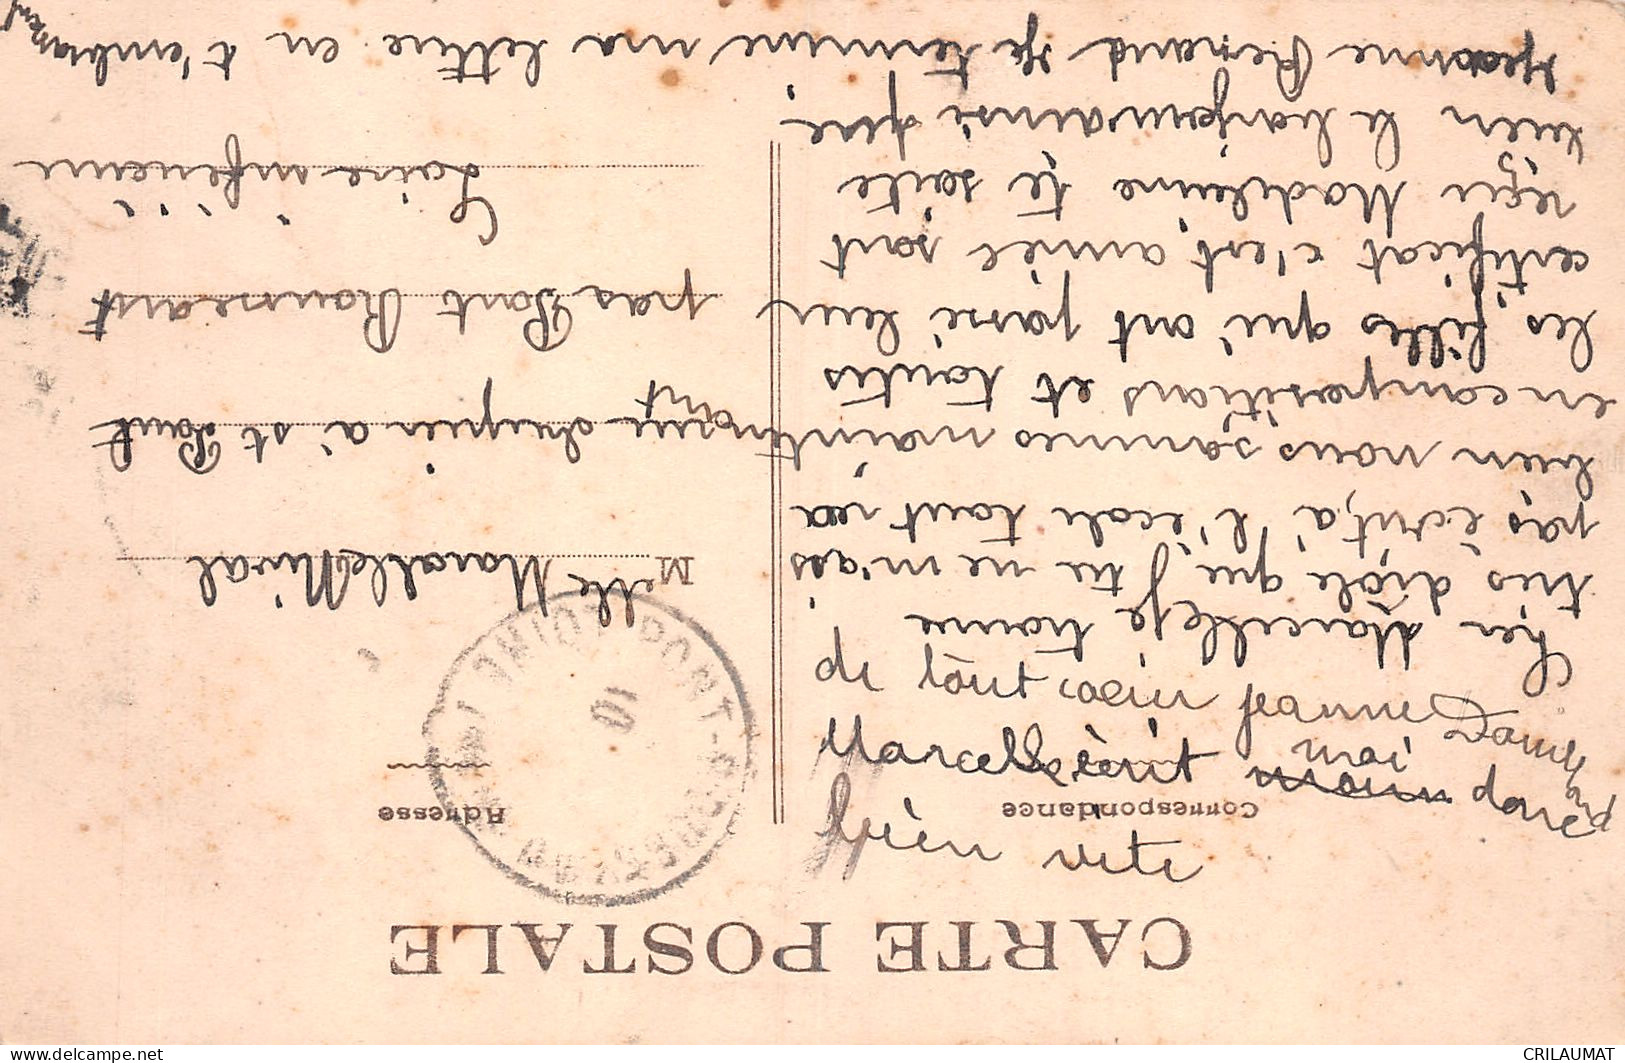 CARTE POSTALE
Correspondance
Adresse
Cher Marcelle je trouve
très drole que tu ne m'aes
pas écrit, a' l'école tout va
bien nous sommes maintenant
en compositions et toutes
les filles qui ont passé leur
certificat c'est année sont
reçu Madeleine te saite
bien le bonjour ainsi que
Yvonne Renaud je termine ma lettre en t'embrassant
de tout cœur Jeanne
Marcelle écrit moi donc
bien vite
Melle Marcelle Nival
a' st Paul
pas Pont Rousseau
Loire inférieure
PONT-ROUSSEAU
10
CRILAUMAT